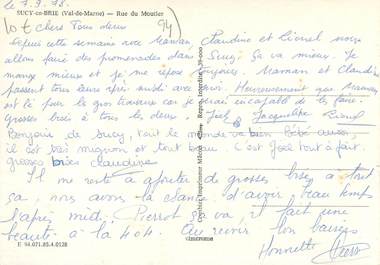 le 7.9.76.
SUCY-en-BRIE (Val-de-Marne) — Rue du Moutier
10 € chers Tous deux 94
Depuis cette semaine avec Maman, Claudine et Lionel nous
allons faire des promenades dans Sucy. Ça va mieux. Je
mange mieux et je me repose toujours. Maman et Claudine
passent tous leurs après midi avec moi. Heureusement que Maman
est là pour le gros travaux car je serai incapable de le faire.
Grosses bises à tous les deux. José Jacqueline Raoul
Bonjour de Sucy, tout le monde va bien bébé aussi,
il est très mignon et tout beau. C'est José tout à fait.
grosses bises Claudine
Il me reste à ajouter de grosses bises à tout
ça, nous avons la chance d'avoir beau temps
l'après midi. Pierrot ça va, il fait une
beauté à la 404. Au revoir bon baisers
Henriette
E 94.071.85.4.0128
Repro. Interdite
Combier Imprimeur Mâcon
CIM